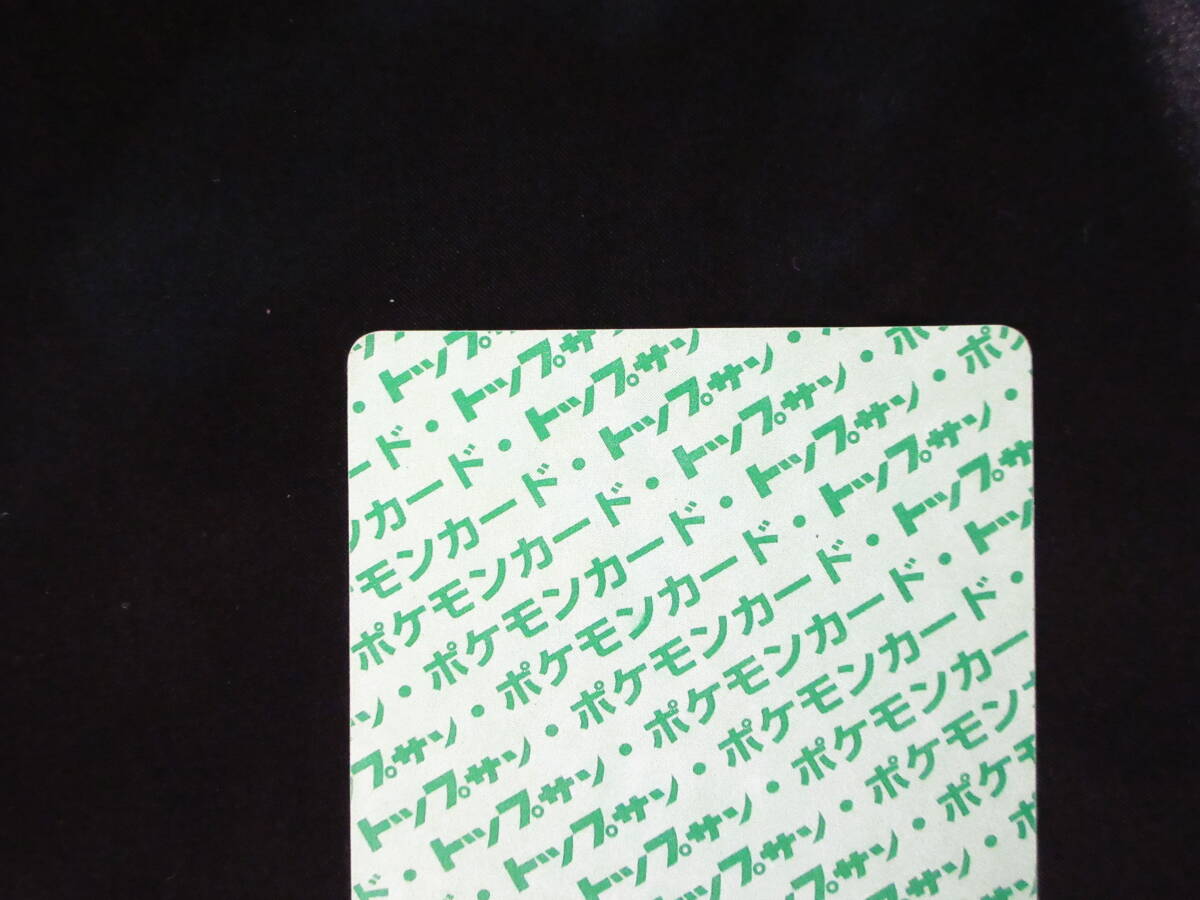 ・トップ
ード・トップサ
ンカード・トップサン
モンカード・トップサン・
ポケモンカード・トップサン・ポ
ン・ポケモンカード・トップサン・ポ
プサン・ポケモンカード・トップサン・
トップサン・ポケモンカード・トップサ
ド・トップサン・ポケモンカード・トッ
・トップサン・ポケモンカード・
トップサン・ポケモンカー
ップサン・ポケモン
プサン・ポケ
サン・ポ